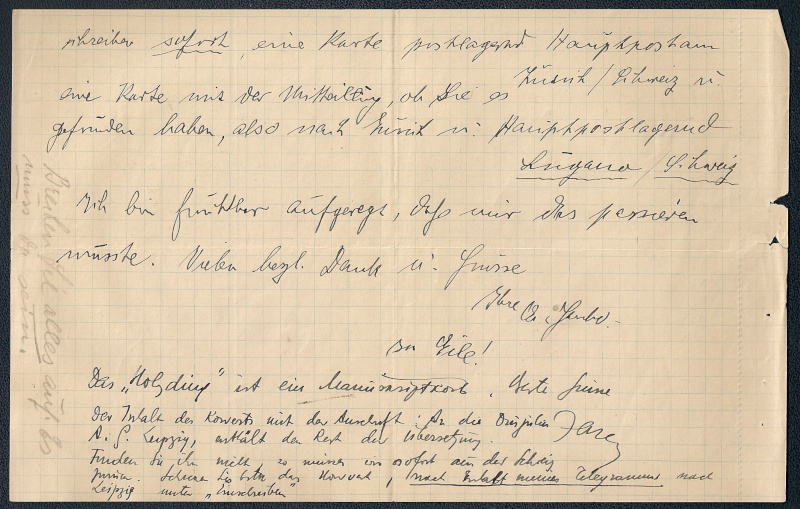 schreiben sofort eine Karte postlagernd Hauptpostam
Zürich / Schweiz u.
eine Karte mit der Mitteilung, ob Sie es
gefunden haben, also nach Zürich u. Hauptpostlagernd
Lugano / Schweiz
Ich bin furchtbar aufgeregt, dass mir das passieren
musste. Vielen herzl. Dank u. Grüsse
Ihre
In Eile!
Das "Holzding" ist ein Manuskriptkorb. Beste Grüsse
Der Inhalt des Kowerts mit der Anschrift: An die
A. G. Leipzig, enthält den Rest der Übersetzung.
Finden Sie ihn nicht so müssen wir sofort aus der Schweiz
Schicken Sie bitte das Kowert, nach Erhalt meines Telegramms nach
Leipzig unter "Einschreiben"
alles auf
muss sein.